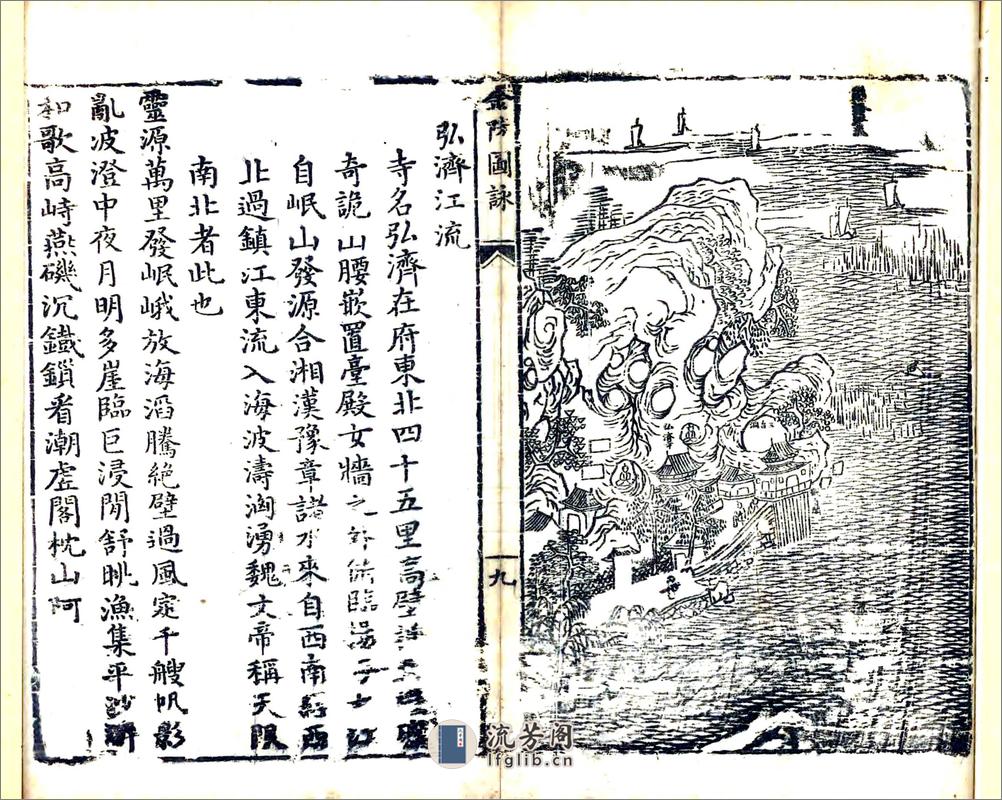 金陵圖詠
九
弘濟江流
寺名弘濟在府東北四十五里高壁
奇詭山腰嵌置臺殿女牆之外俯臨揚子大江
自岷山發源合湘漢豫章諸水來自西南經西
北過鎮江東流入海波濤洶湧魏文帝稱天限
南北者此也
靈源萬里發岷峨放海滔騰絶壁過風定千艘帆影
亂波澄中夜月明多崖臨巨浸閒舒眺漁集平沙
和歌高峙燕磯沉鐵鎖看潮虚閣枕山阿
流芳阁
lfglib.cn